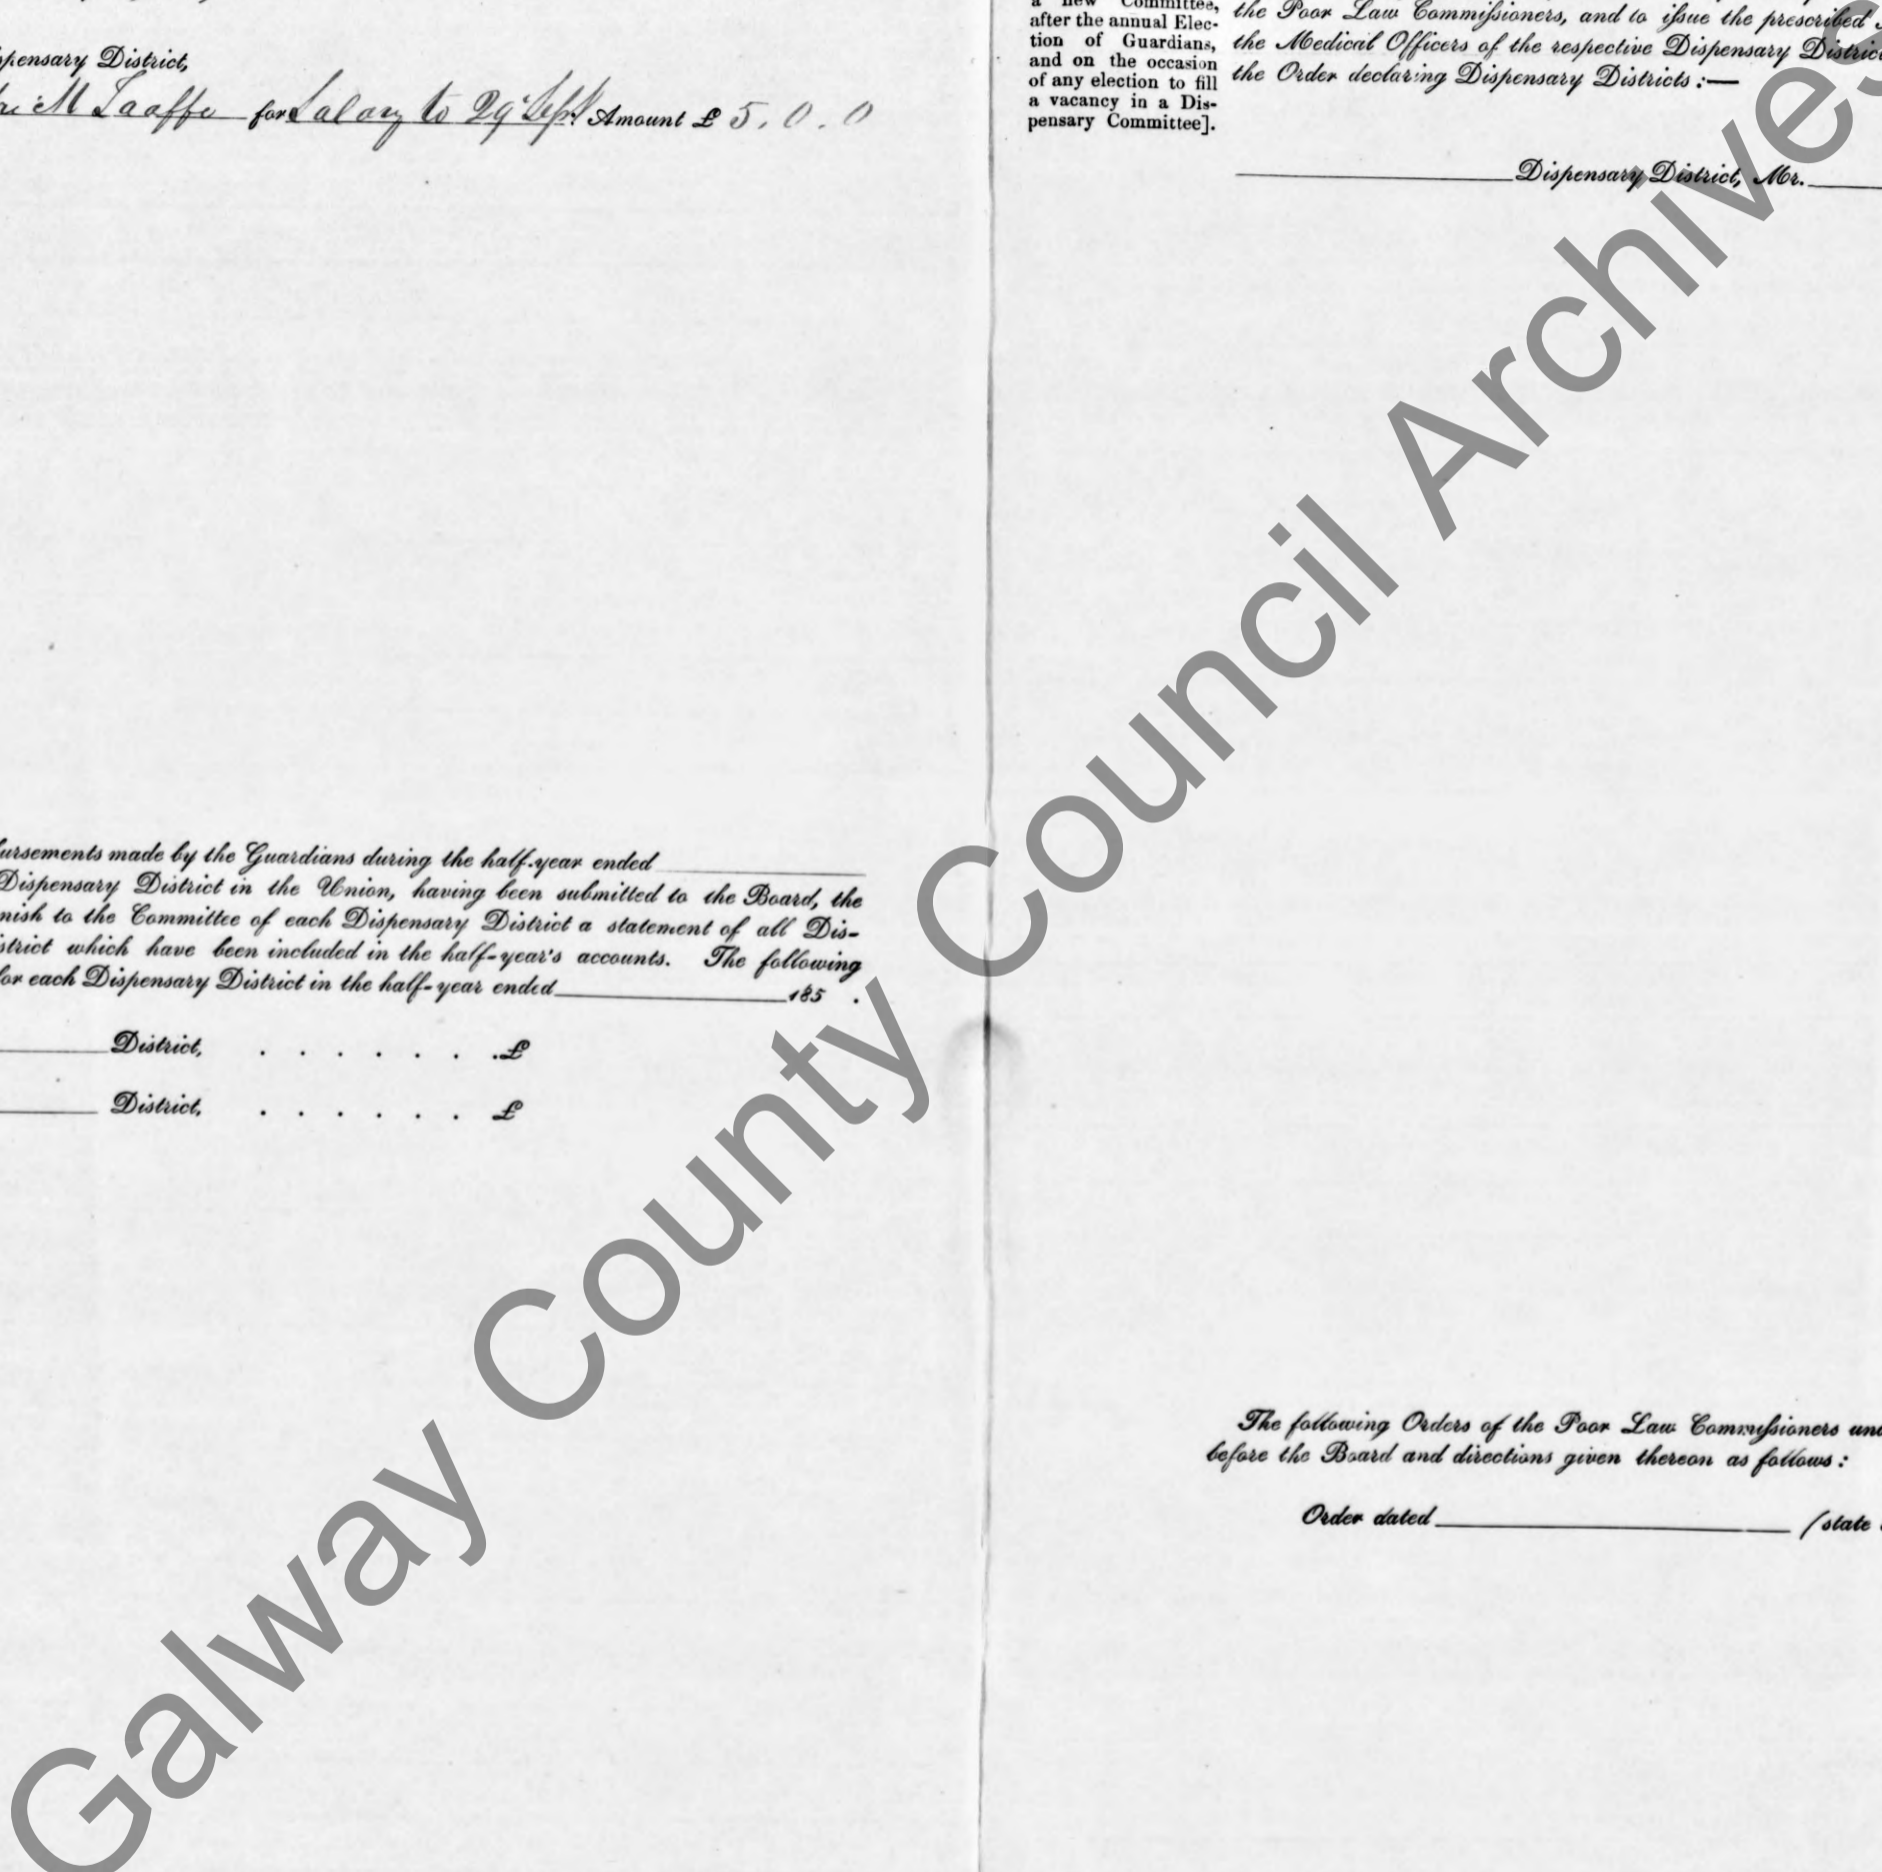 pensary District,
M Taaffe for Salary to 29 Sept Amount £ 5. 0. 0
ursements made by the Guardians during the half-year ended
Dispensary District in the Union, having been submitted to the Board, the
nish to the Committee of each Dispensary District a statement of all Dis-
strict which have been included in the half-year's accounts. The following
for each Dispensary District in the half-year ended 185 .
District, . . . . . . .£
District, . . . . . . £
a new Committee,
after the annual Elec-
tion of Guardians,
and on the occasion
of any election to fill
a vacancy in a Dis-
pensary Committee].
the Poor Law Commissioners, and to issue the prescribed
the Medical Officers of the respective Dispensary Distric
the Order declaring Dispensary Districts :—
Dispensary District, Mr.
The following Orders of the Poor Law Commissioners und
before the Board and directions given thereon as follows :
Order dated (state
Galway County Council Archives